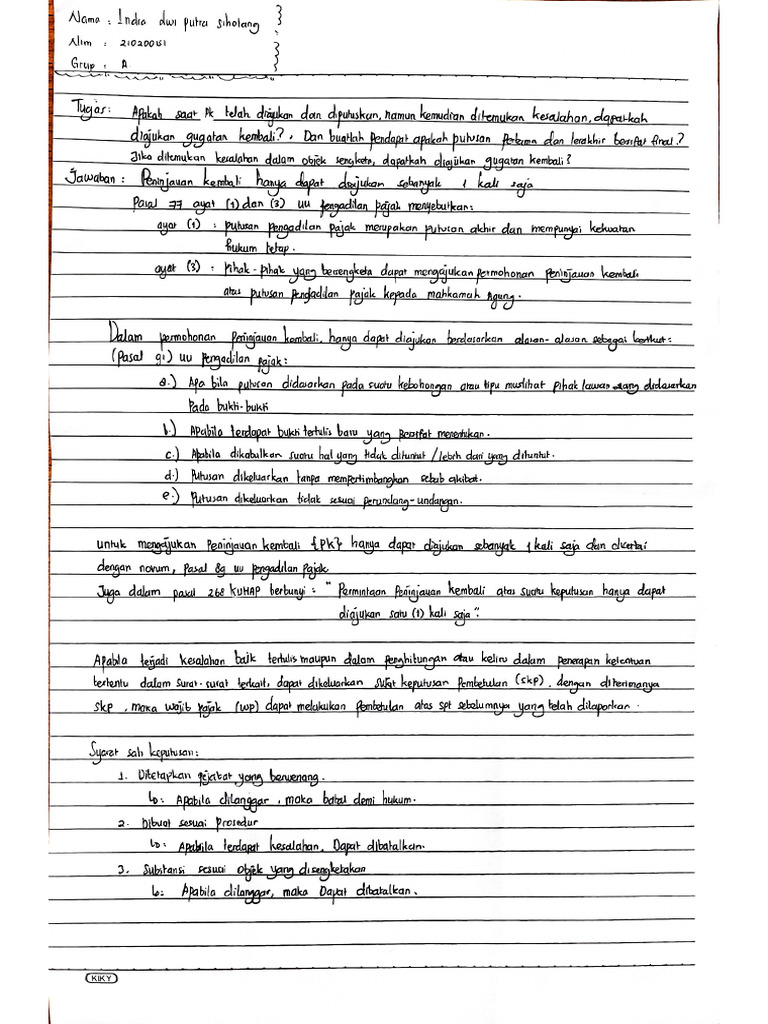 Nama : Indra dwi putra sihotang
Nim : 210200151
Grup : A
Tugas: Apakah saat PK telah diajukan dan diputuskan, namun kemudian ditemukan kesalahan, dapatkah
diajukan gugatan kembali?. Dan buatlah pendapat apakah putusan pertama dan terakhir bersifat final?
Jika ditemukan kesalahan dalam objek sengketa, dapatkah diajukan gugatan kembali?
Jawaban : Peninjauan kembali hanya dapat diajukan sebanyak 1 kali saja
Pasal 77 ayat (1) dan (3) UU pengadilan pajak menyebutkan:
ayat (1) : putusan pengadilan pajak merupakan putusan akhir dan mempunyai kekuatan
hukum tetap.
ayat (3) : Pihak-pihak yang bersengketa dapat mengajukan permohonan peninjauan kembali
atas putusan pengadilan pajak kepada mahkamah agung.
Dalam permohonan peninjauan kembali, hanya dapat diajukan berdasarkan alasan-alasan sebagai berikut:
(Pasal 91) UU pengadilan pajak:
a.) Apa bila putusan didasarkan pada suatu kebohongan atau tipu muslihat pihak lawan yang didasarkan
pada bukti-bukti
b.) Apabila terdapat bukti tertulis baru yang bersifat menentukan.
c.) Apabila dikabulkan suatu hal yang tidak dituntut / lebih dari yang dituntut.
d.) Putusan dikeluarkan tanpa mempertimbangkan sebab akibat.
e.) Putusan dikeluarkan tidak sesuai perundang-undangan.
untuk mengajukan Peninjauan kembali {PK} hanya dapat diajukan sebanyak 1 kali saja dan disertai
dengan novum, pasal 89 UU pengadilan Pajak.
Juga dalam pasal 268 KUHAP berbunyi : " Permintaan Peninjauan kembali atas suatu keputusan hanya dapat
diajukan satu (1) kali saja".
Apabila terjadi kesalahan baik tertulis maupun dalam penghitungan atau keliru dalam penerapan ketentuan
tertentu dalam surat-surat terkait, dapat dikeluarkan surat keputusan pembetulan (skp), dengan diterimanya
skp, maka wajib pajak (wp) dapat melakukan pembetulan atas spt sebelumnya yang telah dilaporkan.
Syarat sah keputusan:
1. Ditetapkan pejabat yang berwenang.
↳: Apabila dilanggar, maka batal demi hukum.
2. Dibuat sesuai prosedur
↳: Apabila terdapat kesalahan, Dapat dibatalkan.
3. Substansi sesuai objek yang disengketakan
↳: Apabila dilanggar, maka Dapat dibatalkan.
KIKY